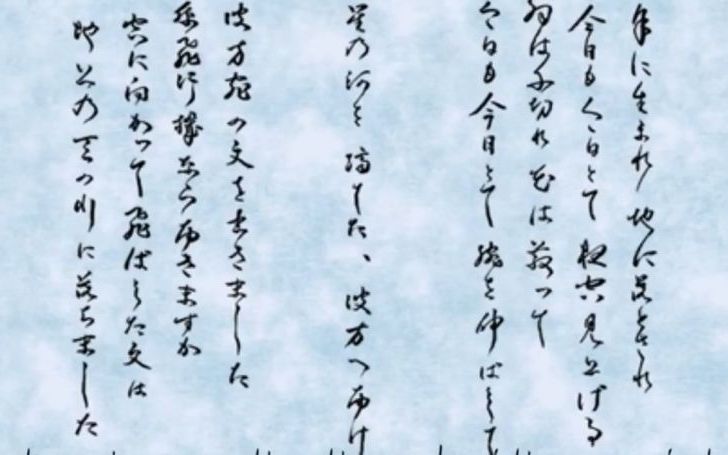 年に生まれ 地に落とされ
今日も今日とて 夜空見上げる
羽は千切れ 花は散って
今日も今日とて 腕を伸ばして
星の河を 隔てた、彼方へ届け
彼方宛の文を書きました
紙飛行機なら届きますか
空に向かって飛ばした文は
地上の天の川に落ちました